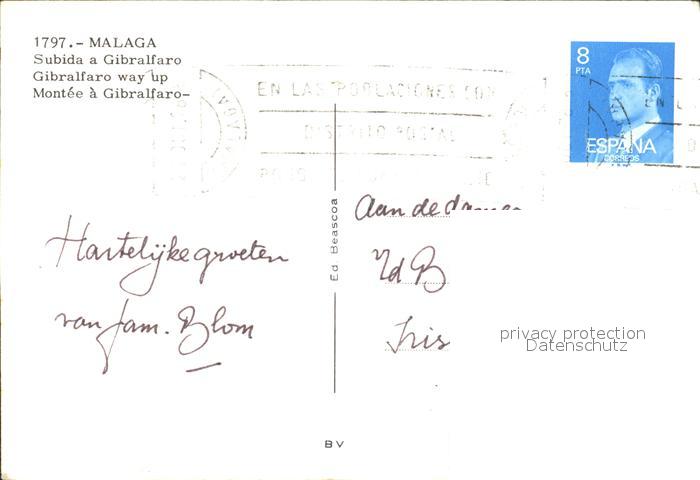 1797.- MALAGA
Subida a Gibralfaro
Gibralfaro way up
Montée à Gibralfaro-
EN LAS POBLACIONES CON
DISTRITO POSTAL
8
PTA
ESPAÑA
CORREOS
EN L
Hartelijke groeten
van fam. Blom
Ed. Beascoa
Aan de
Iris
privacy protection
Datenschutz
BV